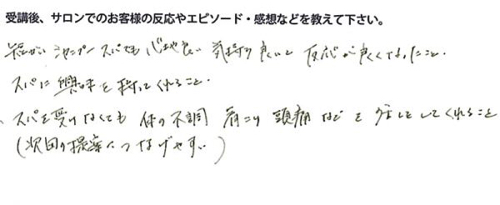 受講後、サロンでのお客様の反応やエピソード・感想などを教えて下さい。
短かい シャンプースパでも 心地良い 気持ち良いと 反応が良くなったこと。
スパに興味を持ってくれること。
スパを受けなくても 体の不調 肩こり 頭痛 などを 話をしてくれること
(次回の提案につなげやすい)